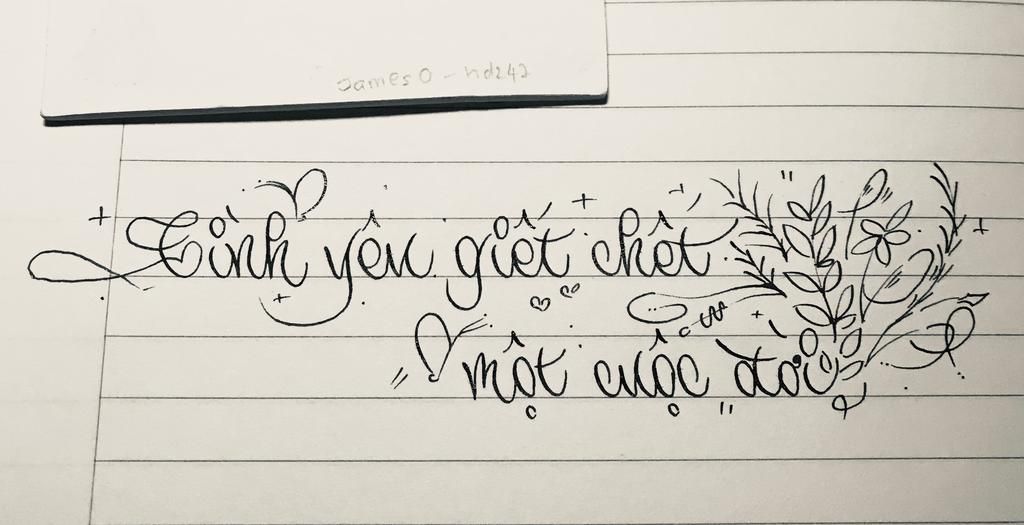 James O - hd247
Tình yêu giết chết
một cuộc đời